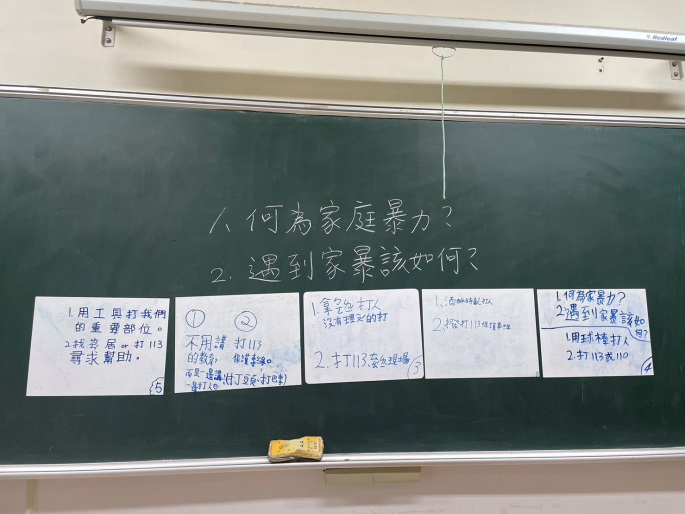 Redleaf
1.何為家庭暴力?
2.遇到家暴該如何?
1.用工具打我們
的重要部位。
2.找鄰居or打113
尋求幫助。
5
① ②
不用講 打113
的教育, 保護專線。
而是一邊講
一邊打人。
1.拿包包打人
沒有理由的打
2.打113
3
2.撥打113保護專線
1.何為家暴力?
2.遇到家暴該如
何?
1.用球棒打人
2.打113或110
4